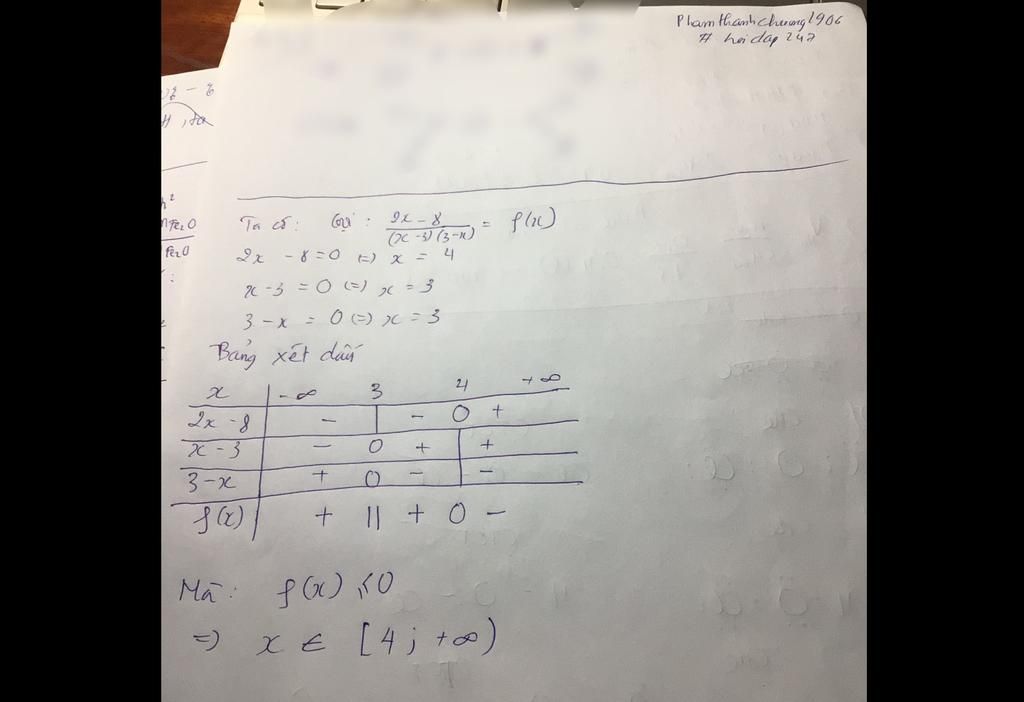 Phamthanhchuong1906
# hoidap247
Ta có: Gọi: \frac{2x-8}{(x-3)(3-x)} = f(x)
2x - 8 = 0 (=) x = 4
x - 3 = 0 (=) x = 3
3 - x = 0 (=) x = 3
Bảng xét dấu
x | -∞ 3 4 +∞
2x - 8 | - | - 0 +
x - 3 | - 0 + | +
3 - x | + 0 - | -
f(x) | + || + 0 -
Mà: f(x) ≤ 0
=) x ∈ [4; +∞)